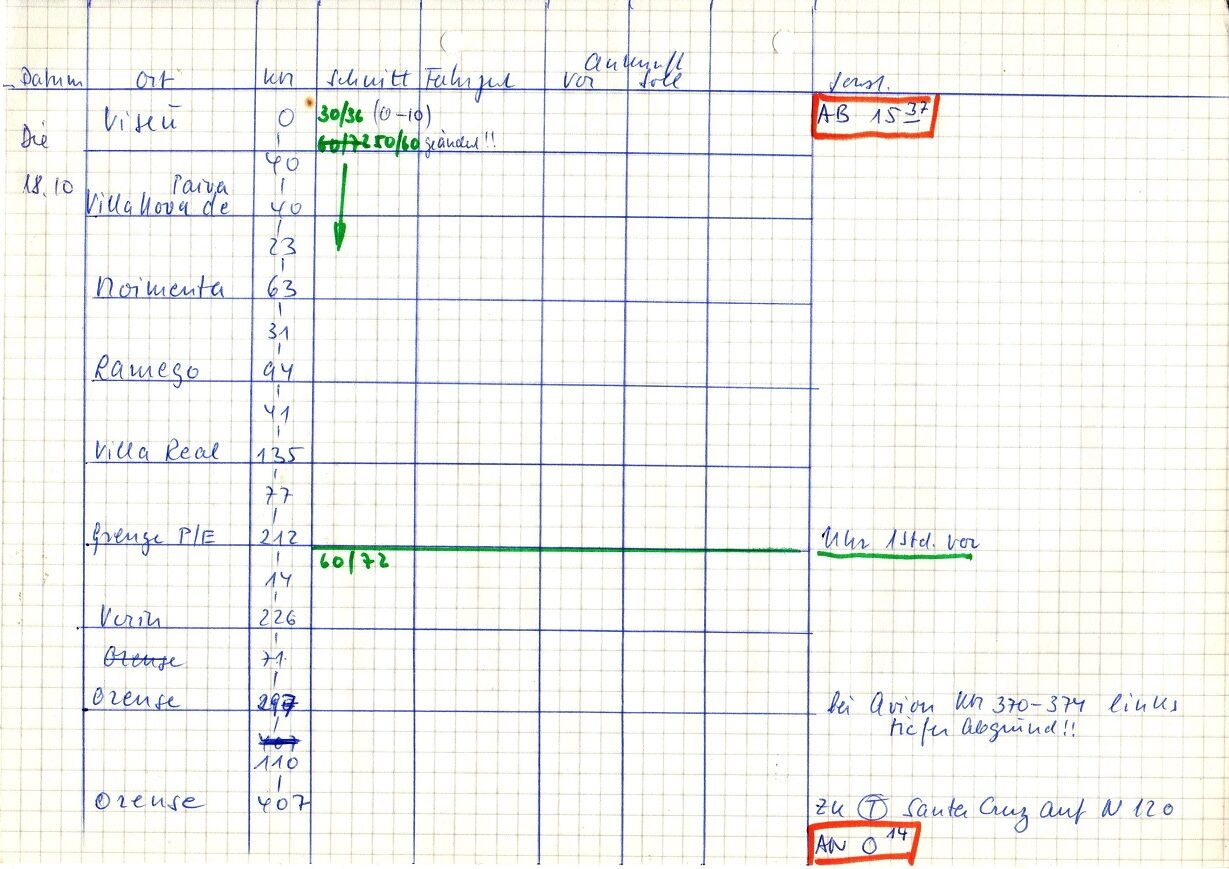 Ankunft
Datum Ort km Schnitt Fahrzeit vor Soll Sonst.
Viseu 0 30/36 (0-10) AB 15 37
Die 60/72 50/60 geändert!!
40
18.10 Paiva
Villa Nova de 40
23
Moimenta 63
31
Lamego 94
41
Villa Real 135
77
Grenze P/E 212 Uhr 1 Std. vor
60/72
14
Verin 226
Orense 71
Orense 297 bei Avion km 370-374 links
tiefer Abgrund!!
407
110
Orense 407 zu T Santa Cruz auf N 120
AN 0 14